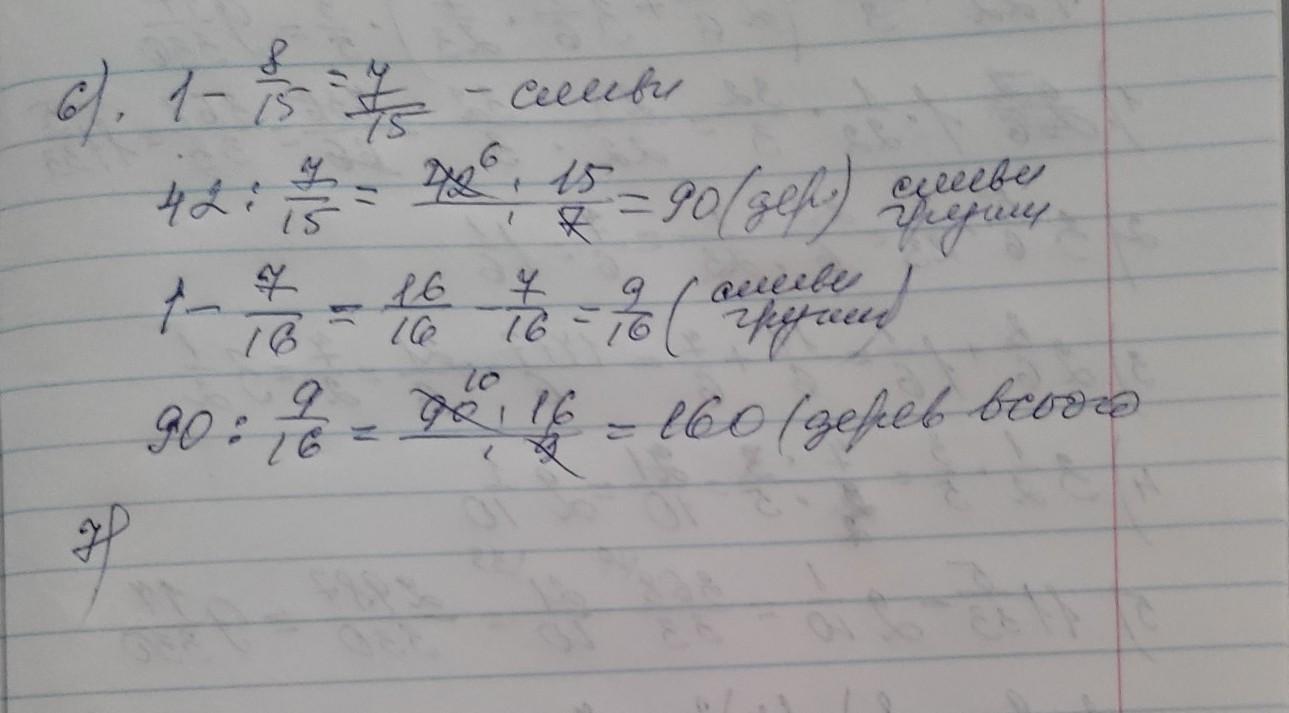 6). 1 - 8/15 = 7/15 - сливи
42 : 7/15 = 42 6 · 15 / 1 · 7 = 90 (дер.) сливи груши
1 - 7/16 = 16/16 - 7/16 = 9/16 (сливи груши)
90 : 9/16 = 90 10 · 16 / 1 · 9 = 160 (дерев всього
7)